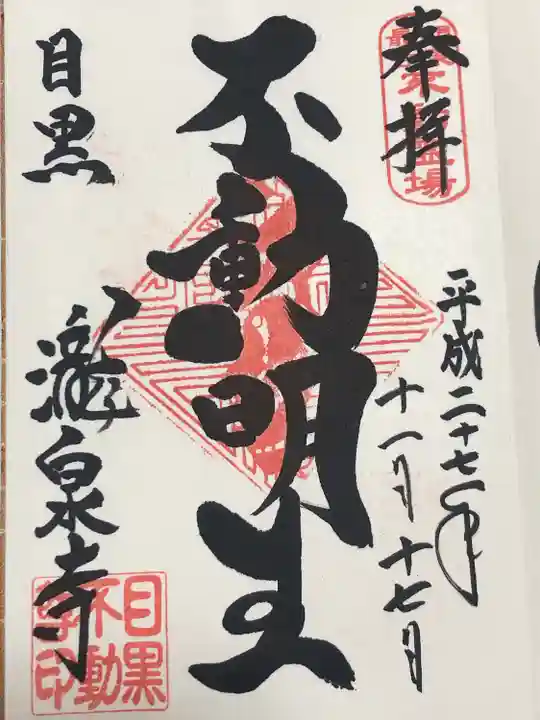 奉拝
平成二十七年
十一月十七日
不動明王
目黒
瀧泉寺
目黒
不動
尊印